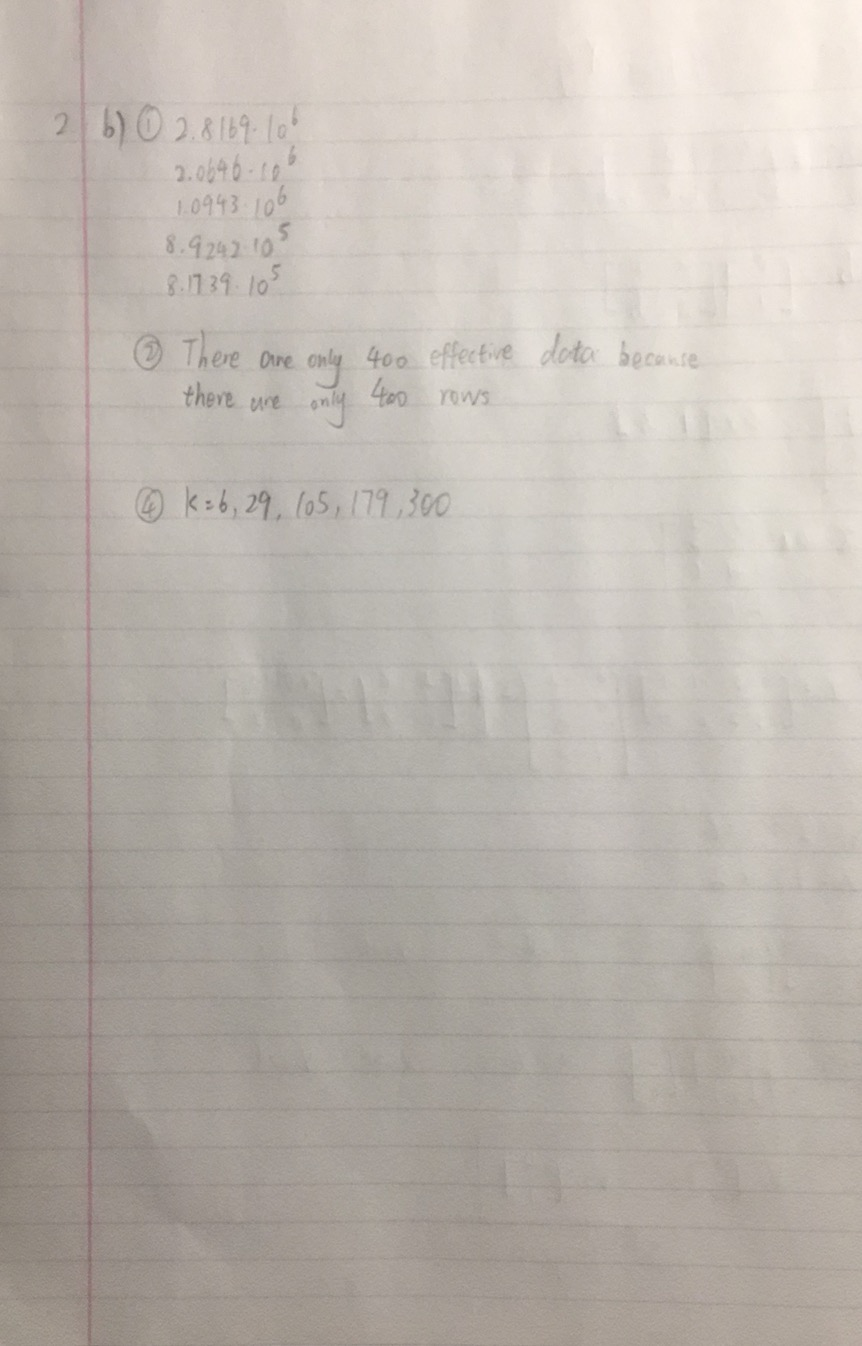 2 b) ① 2.8169·10⁶
2.0646·10⁶
1.0943·10⁶
8.9242·10⁵
8.1739·10⁵
② There are only 400 effective data because
there are only 400 rows
④ k=6, 29, 105, 179, 300